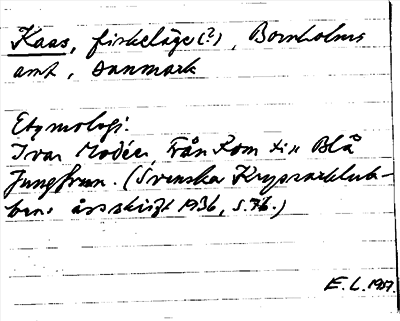 Kaas, fiskeläge(?), Bornholms
amt, Danmark
Etymologi:
Ivar Modéer, Från Rom till Blå
Jungfrun. (Svenska Kryssarklub-
bens årsskrift 1936, s. 76.)
E. L. 1957.